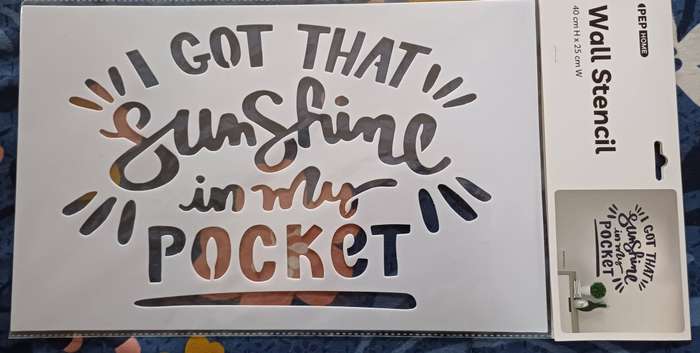 I GOT THAT
Sunshine
in my
POCKET
PEP HOME
Wall Stencil
40 cm H x 25 cm W
I GOT THAT
Sunshine
in my
POCKET